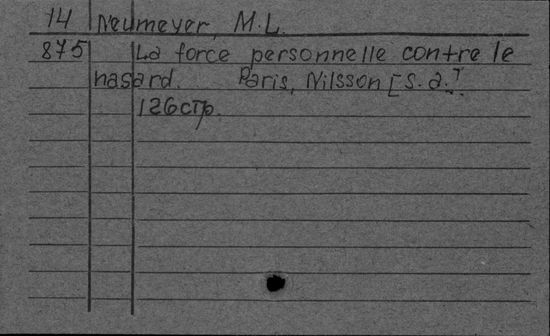 14 Neumeyer, M.L.
875 La force personnelle contre le
hasard. Paris, Nilsson [s.a.].
126 стр.